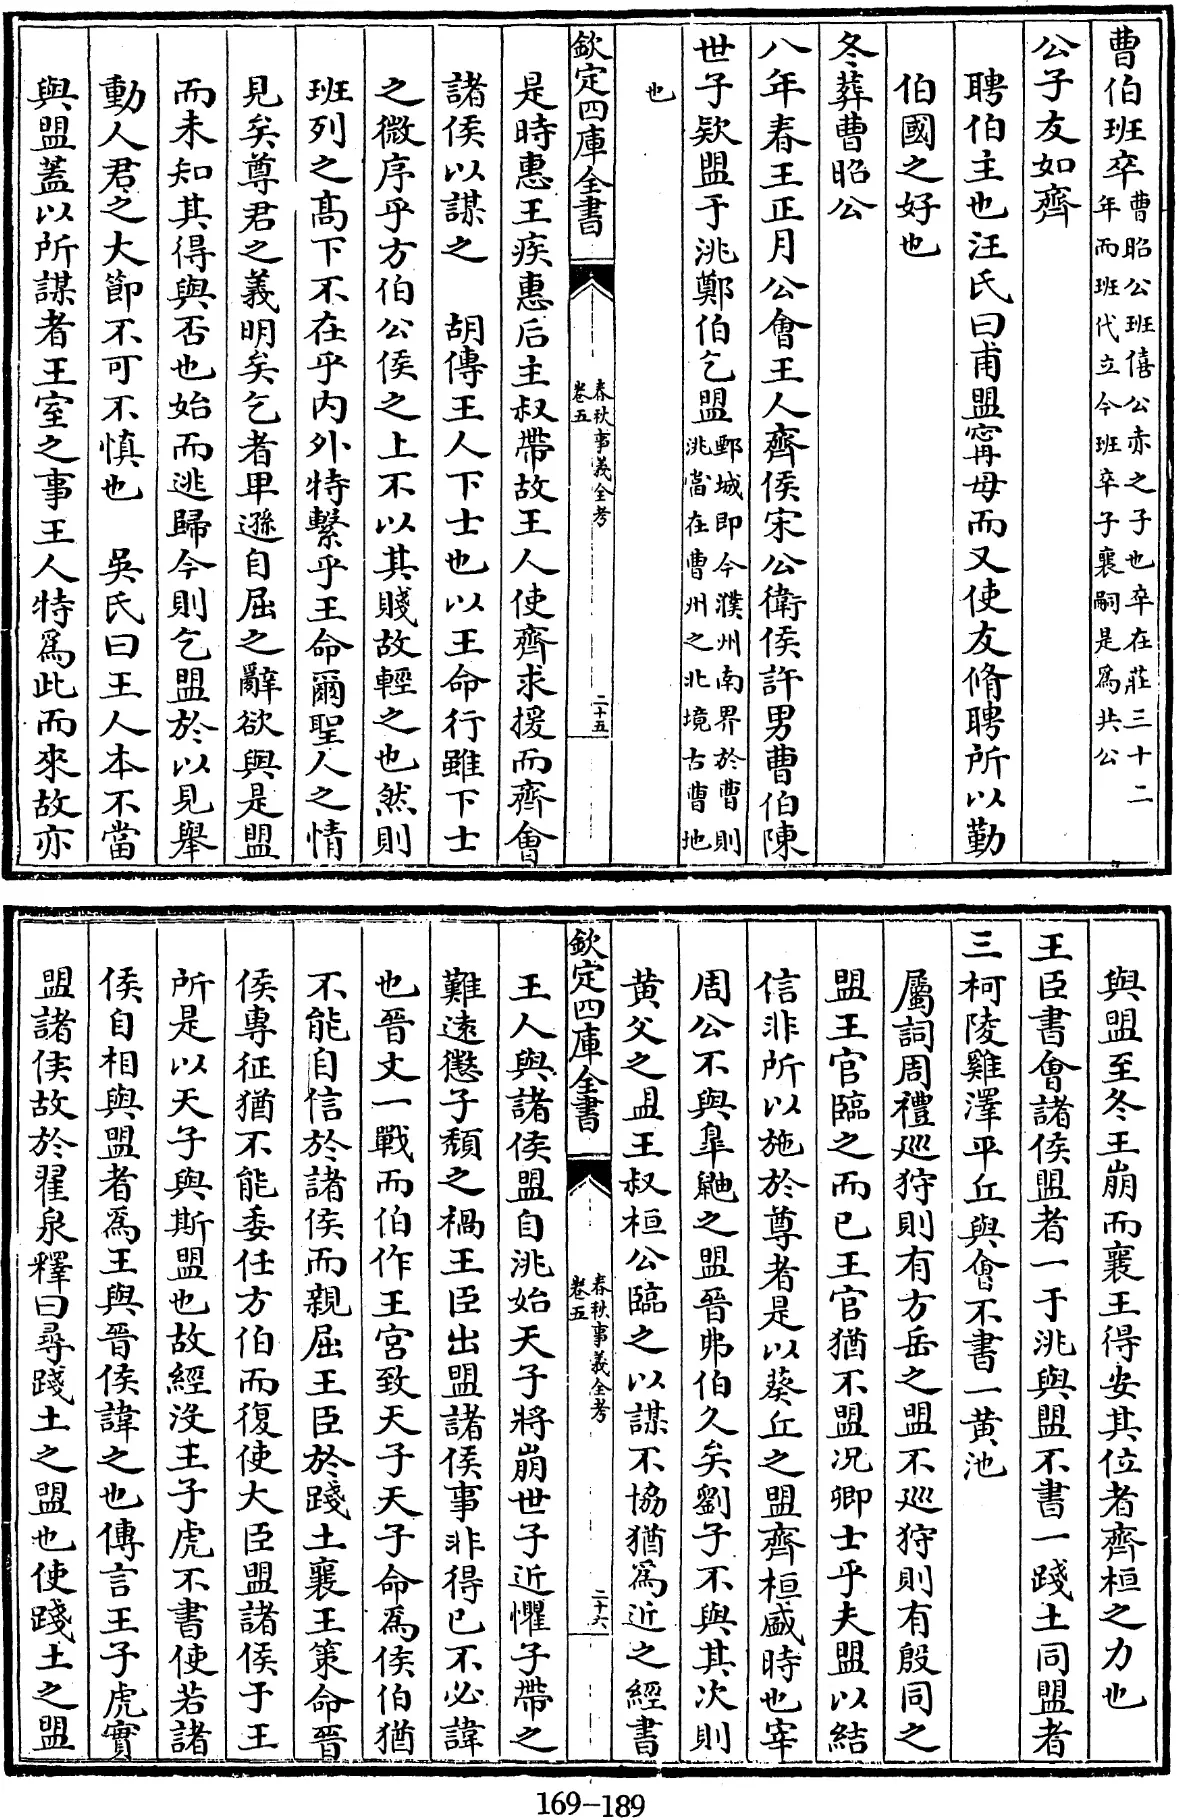 曹伯班卒曹昭公班僖公赤之子也卒在莊三十二
年而班代立今班卒子襄嗣是爲共公
公子友如齊
聘伯主也汪氏曰甫盟甯毋而又使友脩聘所以勤
伯國之好也
冬葬曹昭公
八年春王正月公會王人齊侯宋公衛侯許男曹伯陳
世子欵盟于洮鄭伯乞盟鄄城即今濮州南界於曹則
洮當在曹州之北境古曹地
也
欽定四庫全書
春秋事義全考
卷五
二十五
是時惠王疾惠后主叔帶故王人使齊求援而齊會
諸侯以謀之 胡傳王人下士也以王命行雖下士
之微序乎方伯公侯之上不以其賤故輕之也然則
班列之髙下不在乎内外特繫乎王命爾聖人之情
見矣尊君之義明矣乞者卑遜自屈之辭欲與是盟
而未知其得與否也始而逃歸今則乞盟於以見舉
動人君之大節不可不慎也 吳氏曰王人本不當
與盟蓋以所謀者王室之事王人特爲此而來故亦
與盟至冬王崩而襄王得安其位者齊桓之力也
王臣書會諸侯盟者一于洮與盟不書一踐土同盟者
三柯陵雞澤平丘與會不書一黄池
屬詞周禮巡狩則有方岳之盟不巡狩則有殷同之
盟王官臨之而已王官猶不盟况卿士乎夫盟以結
信非所以施於尊者是以葵丘之盟齊桓盛時也宰
周公不與臯鼬之盟晉弗伯久矣劉子不與其次則
黄父之盟王叔桓公臨之以謀不協猶爲近之經書
欽定四庫全書
春秋事義全考
卷五
二十六
王人與諸侯盟自洮始天子將崩世子近懼子帶之
難遠懲子頽之禍王臣出盟諸侯事非得已不必諱
也晉文一戰而伯作王宮致天子天子命爲侯伯猶
不能自信於諸侯而親屈王臣於踐土襄王策命晉
侯專征猶不能委任方伯而復使大臣盟諸侯于王
所是以天子與斯盟也故經沒王子虎不書使若諸
侯自相與盟者爲王與晉侯諱之也傳言王子虎實
盟諸侯故於翟泉釋曰尋踐土之盟也使踐土之盟
169-189